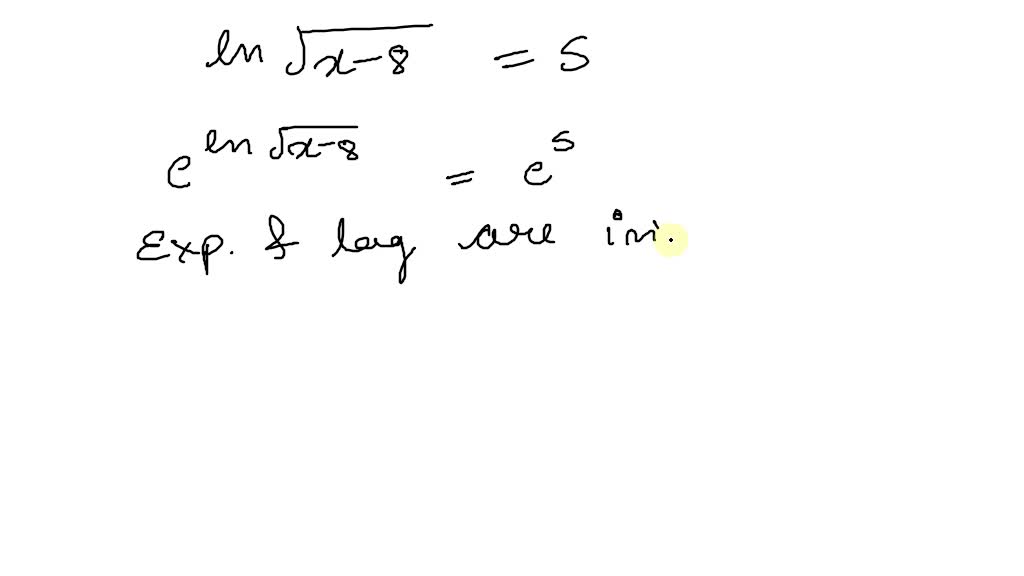 ln √(x-8) = 5
e^(ln √(x-8)) = e^5
Exp. & log are inv.